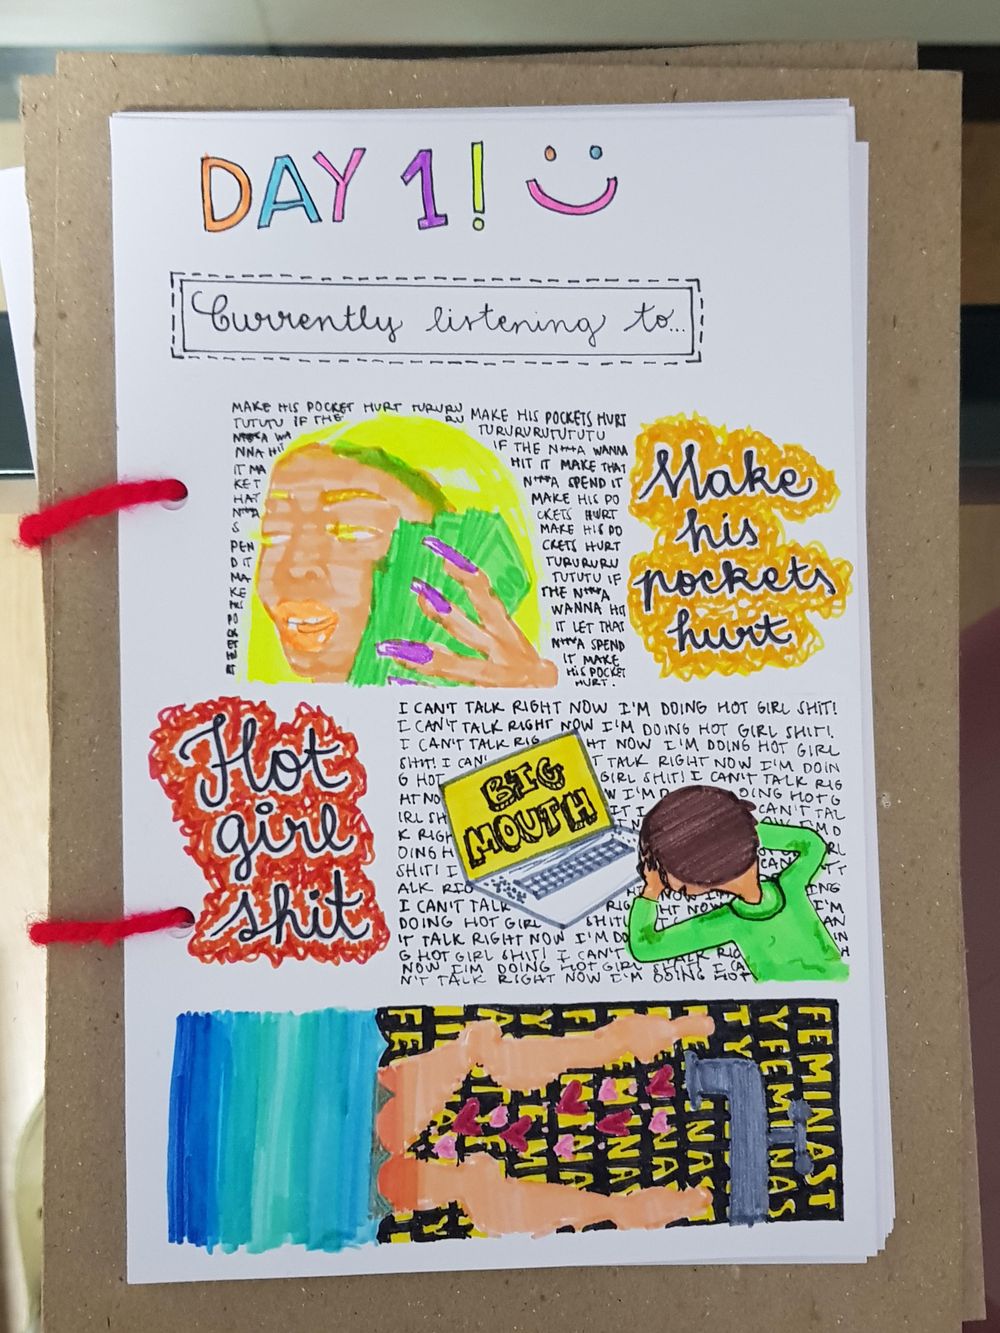 DAY 1!
Currently listening to...
MAKE HIS POCKET HURT TURURURU
TUTUTU IF THE
N***A WA
NNA HI
IT MA
KET
HAT
N**A
S
PEN
D IT
MA
KE
MAKE HIS POCKETS HURT
TURURURUTUTUTU
IF THE N***A WANNA
HIT IT MAKE THAT
N***A SPEND IT
MAKE HIS PO
CKETS HURT
MAKE HIS PO
CKETS HURT
TURURURU
TUTUTU IF
THE N***A
WANNA HIT
IT LET THAT
N***A SPEND
IT MAKE
HIS POCKET
HURT.
Make
his
pockets
hurt
Hot
girl
shit
I CAN'T TALK RIGHT NOW I'M DOING HOT GIRL SHIT!
I CAN'T TALK RIGHT NOW I'M DOING HOT GIRL SHIT!
I CAN'T TALK RIG HT NOW I'M DOING HOT GIRL
SHIT! I CAN' T TALK RIGHT NOW I'M DOIN
G HOT GIRL SHIT! I CAN'T TALK RIG
HT NO DOING HOT G
IRL SH CAN'T TAL
K RIGH
OING H
SHIT! I
ALK RIG
I CAN'T TALK
DOING HOT GIRL
IT TALK RIGHT NOW I'M DO
G HOT GIRL SHIT! I CAN'T TALK RIG
NOW I'M DOING HOT GIRL SHIT! I CA
N'T TALK RIGHT NOW I'M DOING HOT
BIG
MOUTH
FEMINAST
YFEMINAS